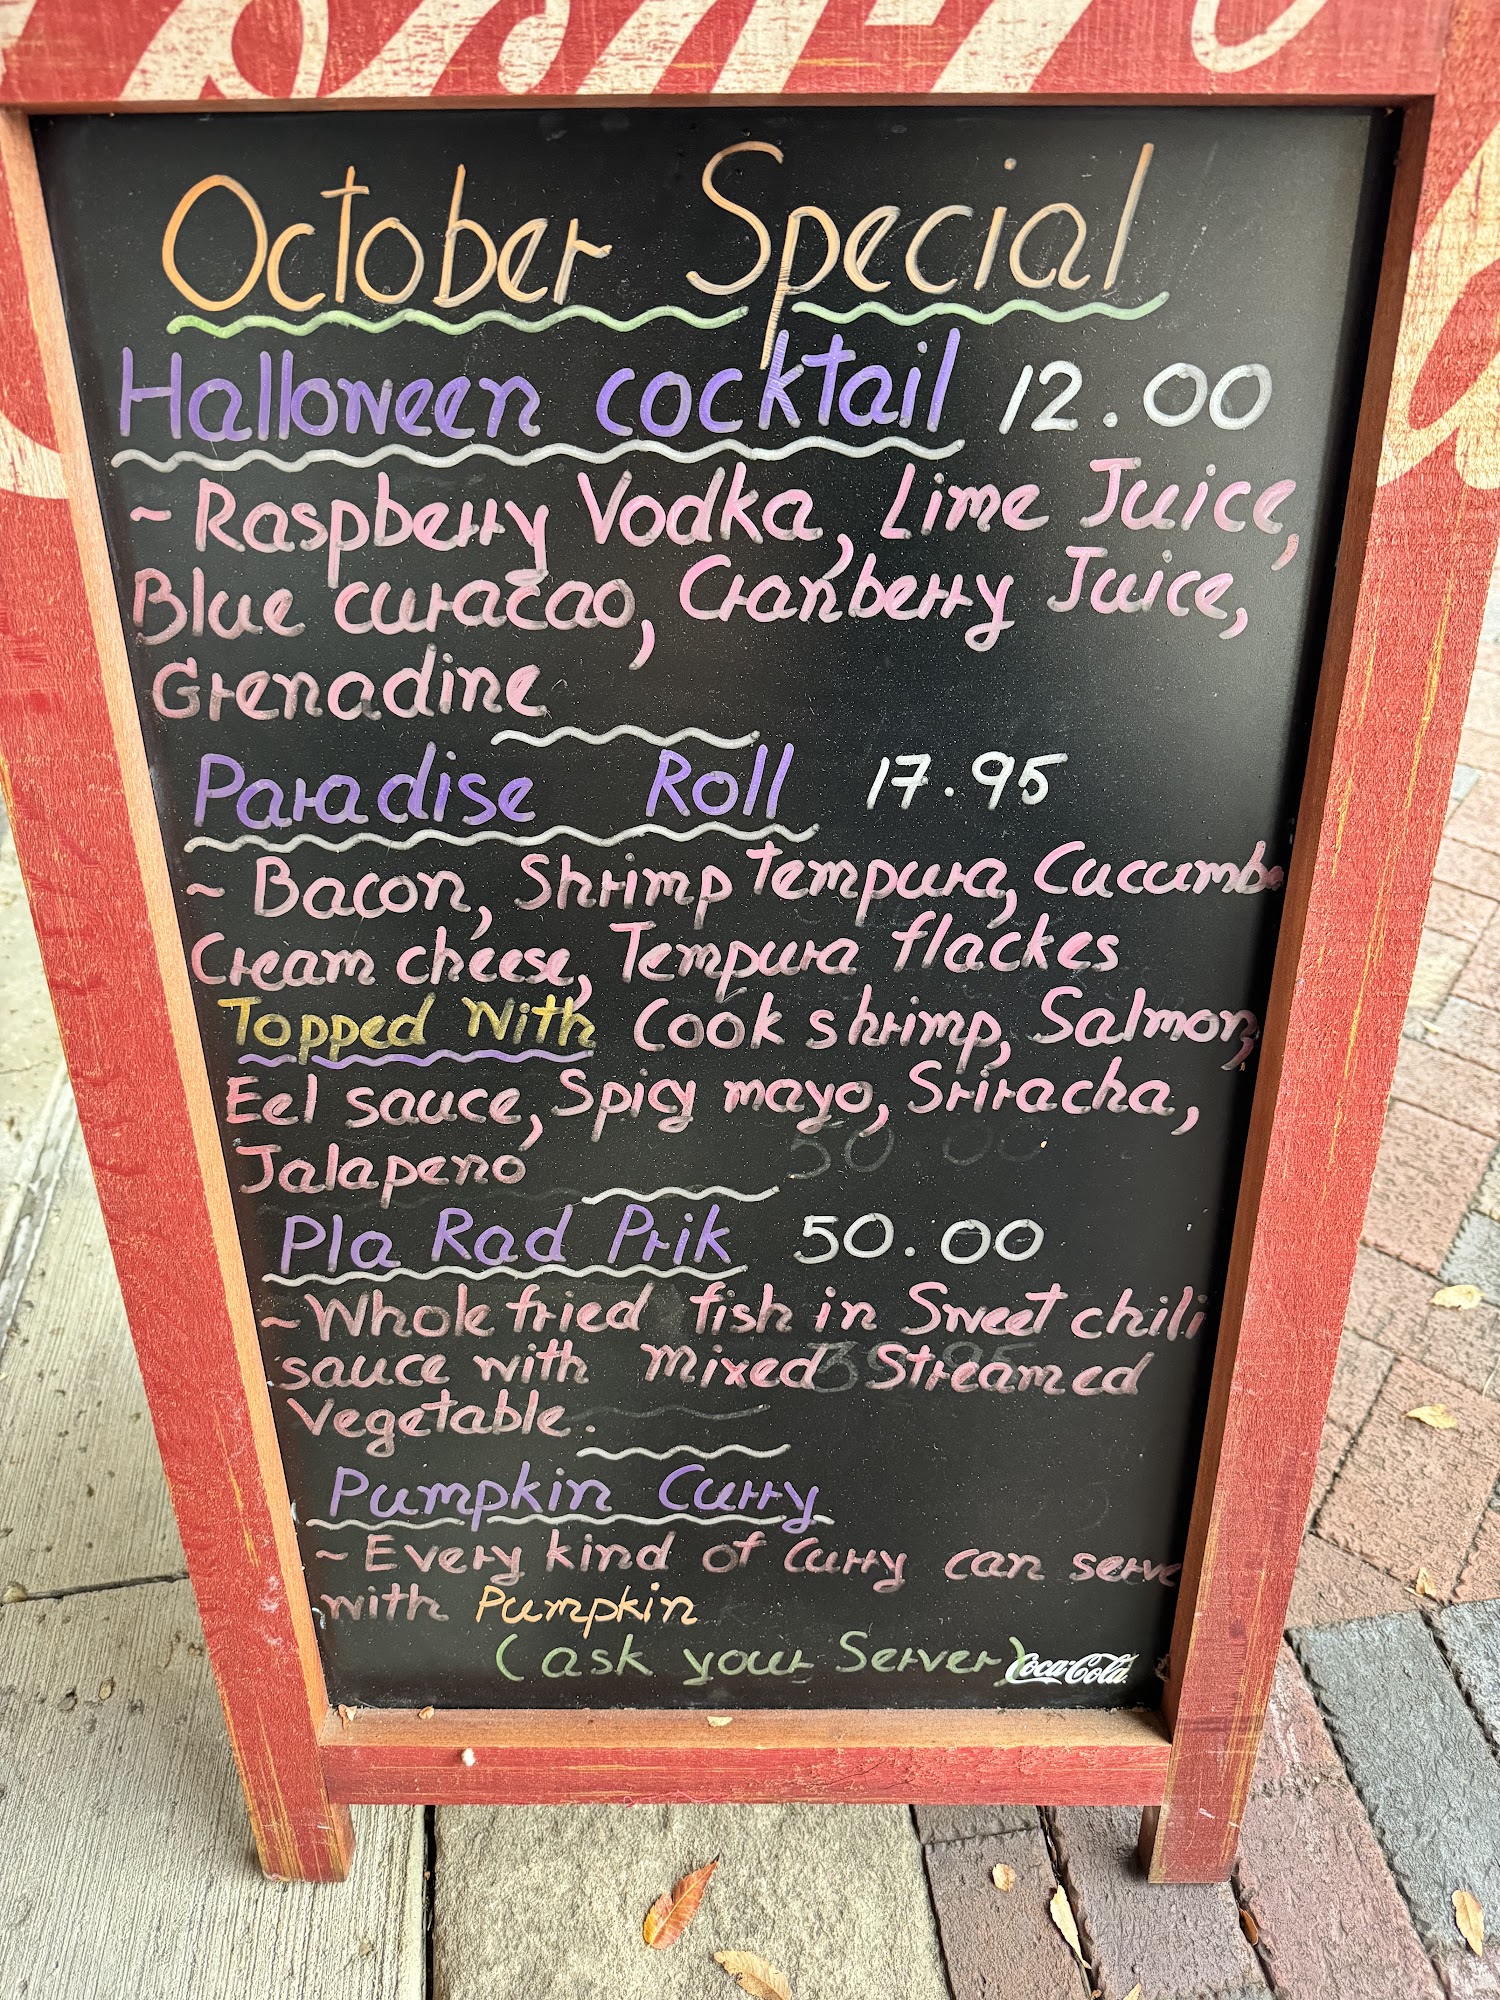 October Special
Halloween cocktail 12.00
~ Raspberry Vodka, Lime Juice,
Blue curacao, Cranberry Juice,
Grenadine
Paradise Roll 17.95
~ Bacon, Shrimp tempura, Cucumbe
Cream cheese, Tempura flackes
Topped With Cook shrimp, Salmon,
Eel sauce, Spicy mayo, Sriracha,
Jalapeno
50.00
Pla Rad Prik 50.00
~ Whole fried fish in Sweet chili
sauce with mixed Streamed
Vegetable.
Pumpkin Curry
~ Every kind of Curry can serve
with Pumpkin
(ask your Server)
Coca-Cola